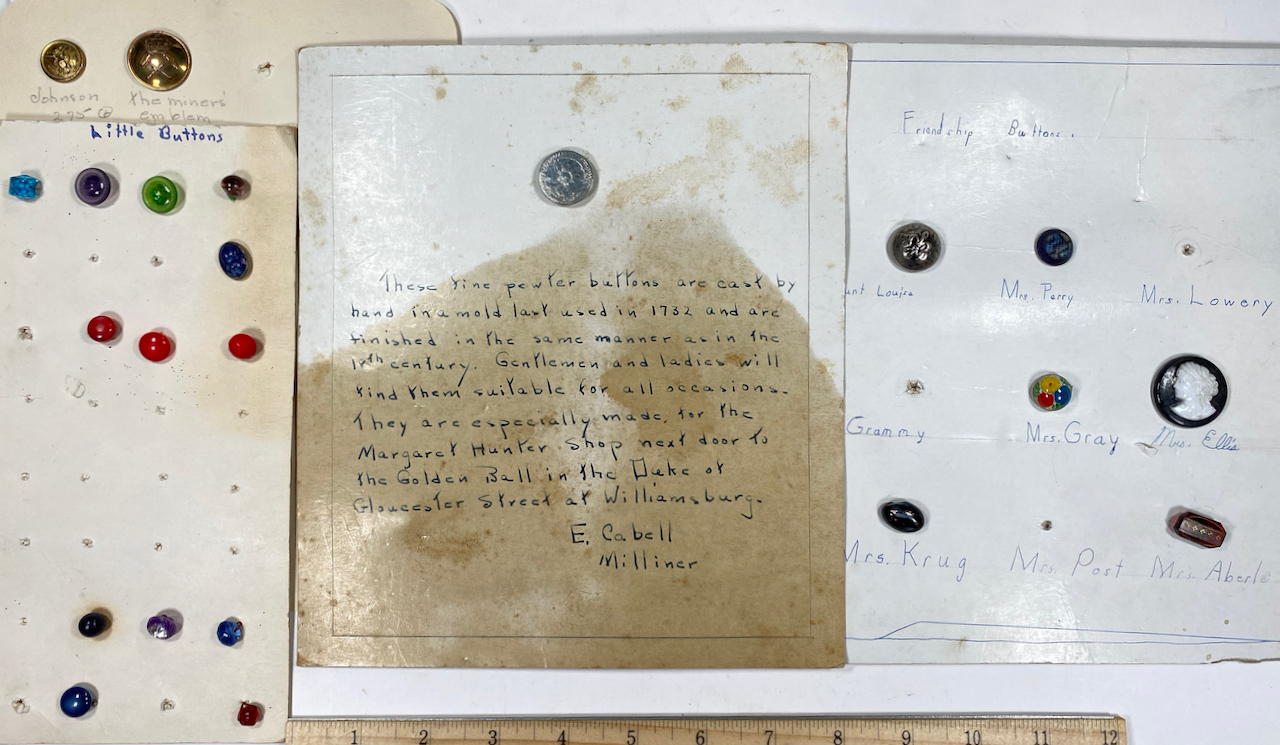 Johnson
275 @
the miners'
emblem
Little Buttons
These fine pewter buttons are cast by
hand in a mold last used in 1732 and are
finished in the same manner as in the
18th century. Gentlemen and ladies will
find them suitable for all occasions.
They are especially made, for the
Margaret Hunter Shop next door to
the Golden Ball in the Duke of
Gloucester Street at Williamsburg.
E. Cabell
Milliner
Friendship Buttons.
unt Louise
Mrs. Perry
Mrs. Lowery
Grammy
Mrs. Gray
Mrs. Ellis
Mrs. Krug
Mrs. Post
Mrs. Aberle
1 2 3 4 5 6 7 8 9 10 11 12